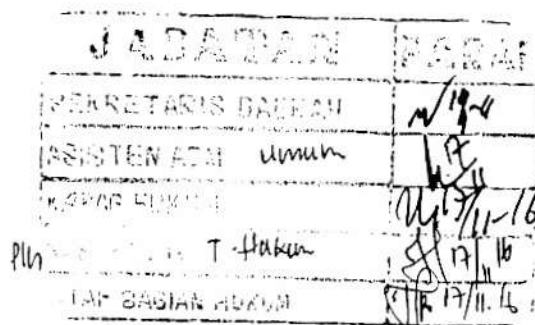 JABATAN PARAF
SEKRETARIS DAERAH 19-11
ASISTEN ADM Umum 17/11
KABAG HUKUM 17/11-16
Plh T. Hukum 17/11 16
STAF BAGIAN HUKUM 17/11.16